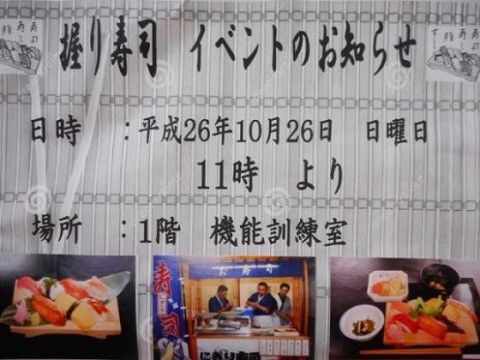 握り寿司 イベントのお知らせ
日時 ：平成26年10月26日 日曜日
11時 より
場所 ：1階 機能訓練室
お寿司
寿司
にぎり寿司